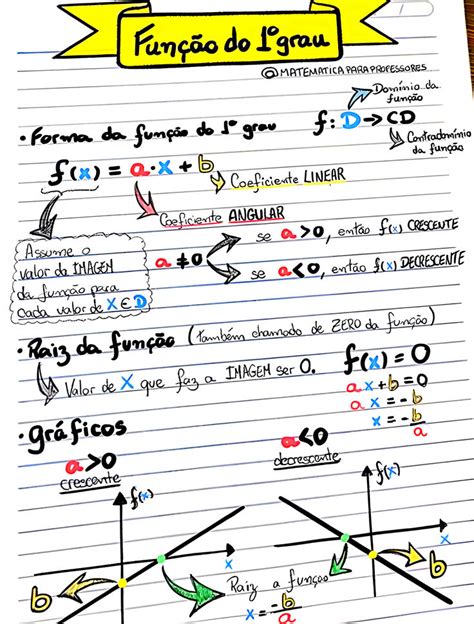 Função do 1º grau
@MATEMATICAPARAPROFESSORES
Domínio da
função
• Forma da função do 1º grau
f: D → CD
Contradomínio
da função
f(x) = a·x + b
Coeficiente LINEAR
Coeficiente ANGULAR
Assume o
valor da IMAGEM
da função para
cada valor de X ∈ D
a ≠ 0
se a > 0, então f(x) CRESCENTE
se a < 0, então f(x) DECRESCENTE
• Raiz da função (também chamado de ZERO da função)
Valor de X que faz a IMAGEM ser 0.
f(x) = 0
ax + b = 0
ax = -b
x = -b/a
• gráficos
a > 0
crescente
a < 0
decrescente
f(x)
f(x)
x
x
b
b
Raiz a função
x = -b/a